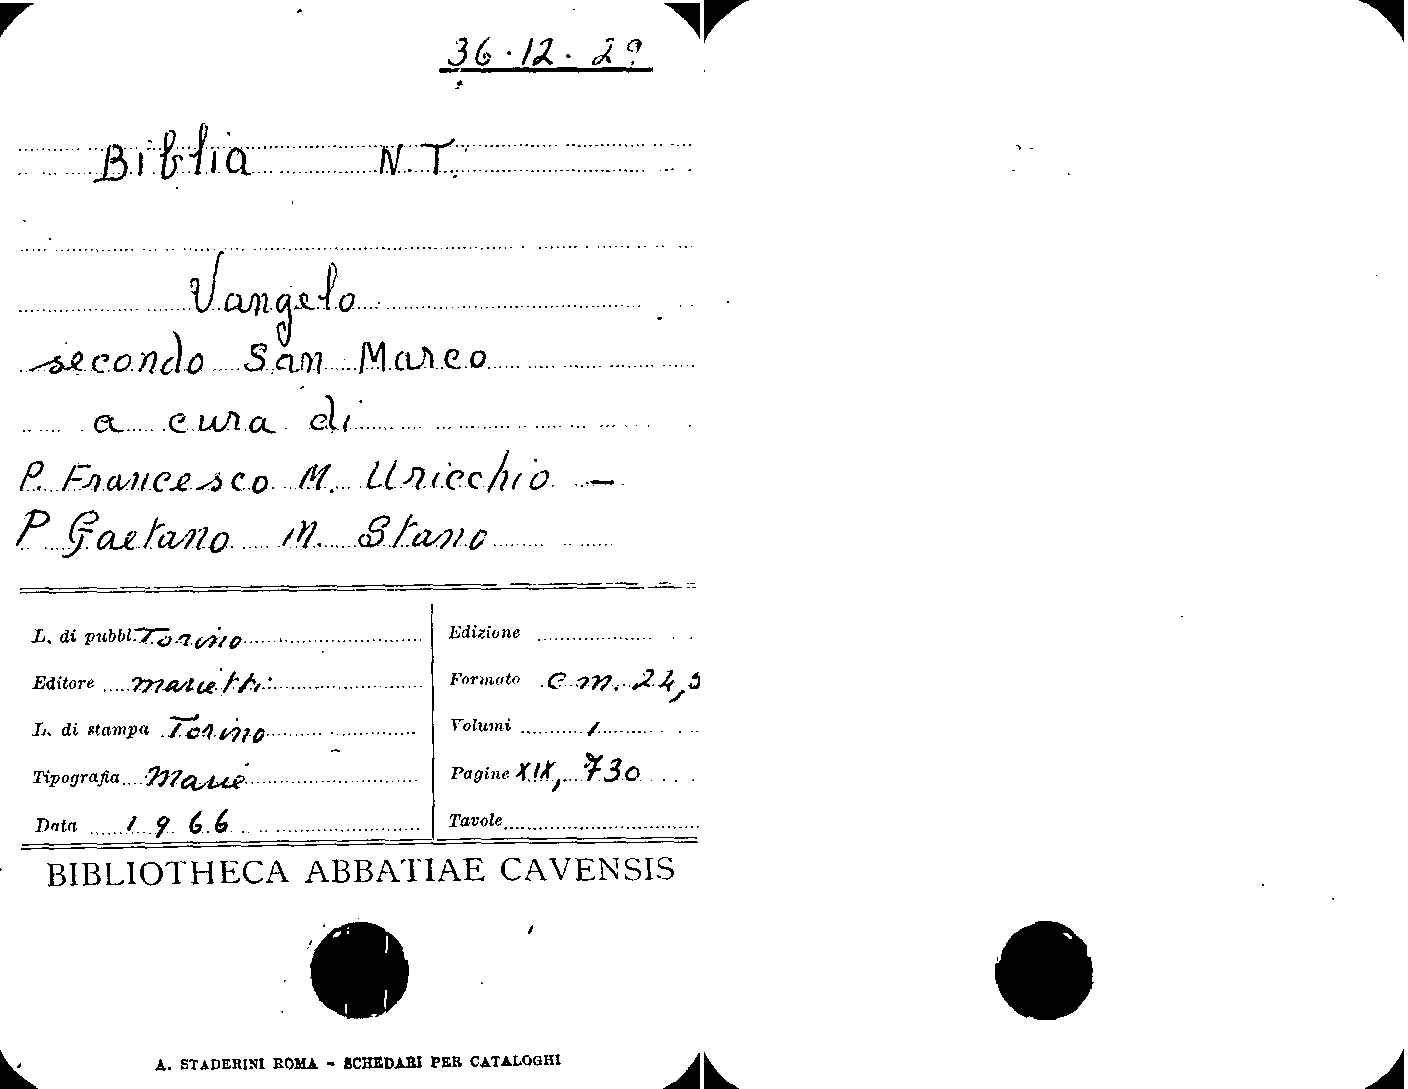 36.12.29
Biblia N.T.
Vangelo
secondo San Marco
a cura di
P. Francesco M. Uricchio –
P Gaetano M. Stano
L. di pubbl. Torino
Editore Marietti
L. di stampa Torino
Tipografia Marie
Data 1966
Edizione
Formato cm. 24,5
Volumi 1
Pagine XIX, 730
Tavole
BIBLIOTHECA ABBATIAE CAVENSIS
A. STADERINI ROMA - SCHEDARI PER CATALOGHI